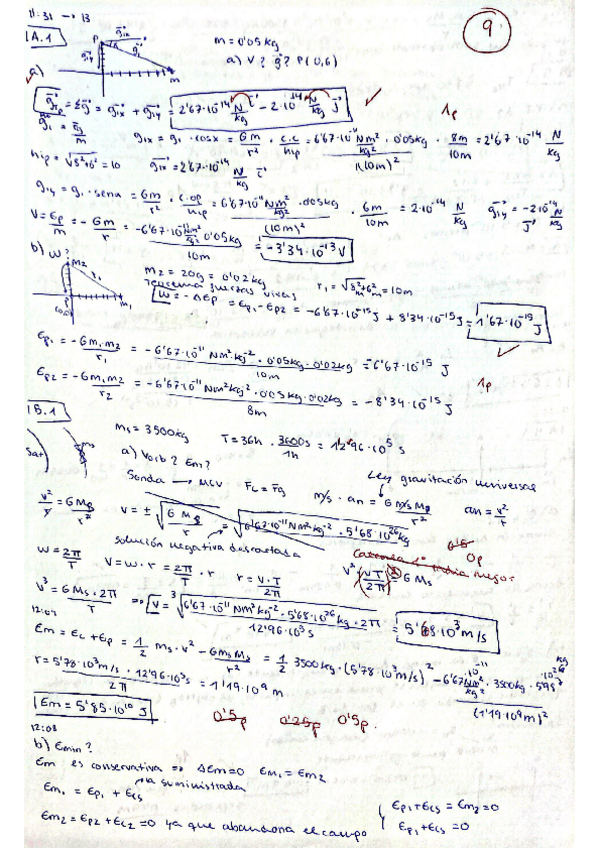 11:31 → 13
9
1A.1
m = 0'05 kg
a) V? g⃗? P(0,6)
P g⃗ix
g⃗iy g⃗i
m
a)
g⃗Tp = Σg⃗ = g⃗ix + g⃗iy = 2'67·10⁻¹⁴ N/kg i⃗ - 2·10⁻¹⁴ N/kg j⃗
1p
g⃗i = F⃗g/m gix = gi · cosα = Gm/r² · c.c/hip = 6'67·10⁻¹¹ Nm²/kg² · 0'05kg/(10m)² · 8m/10m = 2'67·10⁻¹⁴ N/kg
hip = √8²+6² = 10 g⃗ix = 2'67·10⁻¹⁴ N/kg i⃗
giy = gi · senα = Gm/r² · c.op/hip = 6'67·10⁻¹¹ Nm²/kg² · 0'05kg/(10m)² · 6m/10m = 2·10⁻¹⁴ N/kg g⃗iy = -2·10⁻¹⁴ N/kg j⃗
V = Ep/m = -Gm/r = -6'67·10⁻¹¹ Nm²/kg² 0'05kg/10m = -3'34·10⁻¹³ V
b) W?
m2
r1
m1
P
(0,0)
m2 = 20g = 0'02 kg
r1 = √8²+6² m = 10m
Teorema fuerzas vivas
W = -ΔEp = Ep1 - Ep2 = -6'67·10⁻¹⁵ J + 8'34·10⁻¹⁵ J = 1'67·10⁻¹⁵ J
Ep1 = -Gm1m2/r1 = -6'67·10⁻¹¹ Nm²kg⁻² · 0'05kg · 0'02kg/10m = -6'67·10⁻¹⁵ J
1p
Ep2 = -Gm1m2/r2 = -6'67·10⁻¹¹ Nm²kg⁻² · 0'05kg · 0'02kg/8m = -8'34·10⁻¹⁵ J
1B.1
Sat
ms
ms = 3500kg T = 36h · 3600s/1h = 1'296·10⁵ s
a) Vorb? Em?
Sonda → MCU Fc = Fg
Ley gravitación universal
ms · an = G ms Ms/r² an = v²/r
v²/r = G Ms/r² v = ± √G Ms/r = √6'67·10⁻¹¹ Nm²kg⁻² · 5'68·10²⁶ kg
solución negativa descartada
0'5
0p
w = 2π/T v = w·r = 2π/T · r r = v·T/2π v² (vT/2π) = G Ms
v³ = G Ms · 2π/T ⇒ v = ³√6'67·10⁻¹¹ Nm²kg⁻² · 5'68·10²⁶ kg · 2π/12'96·10³ s = 5'68·10³ m/s
12:07
Em = Ec + Ep = 1/2 ms·v² - G ms Ms/r = 1/2 3500kg · (5'78·10³ m/s)² - 6'67·10⁻¹¹ Nm²/kg² · 3500kg · 5'98 /(1'19·10⁹ m)²
r = 5'78·10³ m/s · 12'96·10³ s/2π = 1'19·10⁹ m
Em = 5'85·10¹⁰ J
0'5p 0'25p 0'5p.
12:08
b) Emin?
Em es conservativa ⇒ ΔEm = 0 Em1 = Em2
Em1 = Ep1 + Ecs → la suministrada
Em2 = Ep2 + Ec2 = 0 ya que abandona el campo
Ep1 + Ecs = Em2 = 0
Ep1 + Ecs = 0